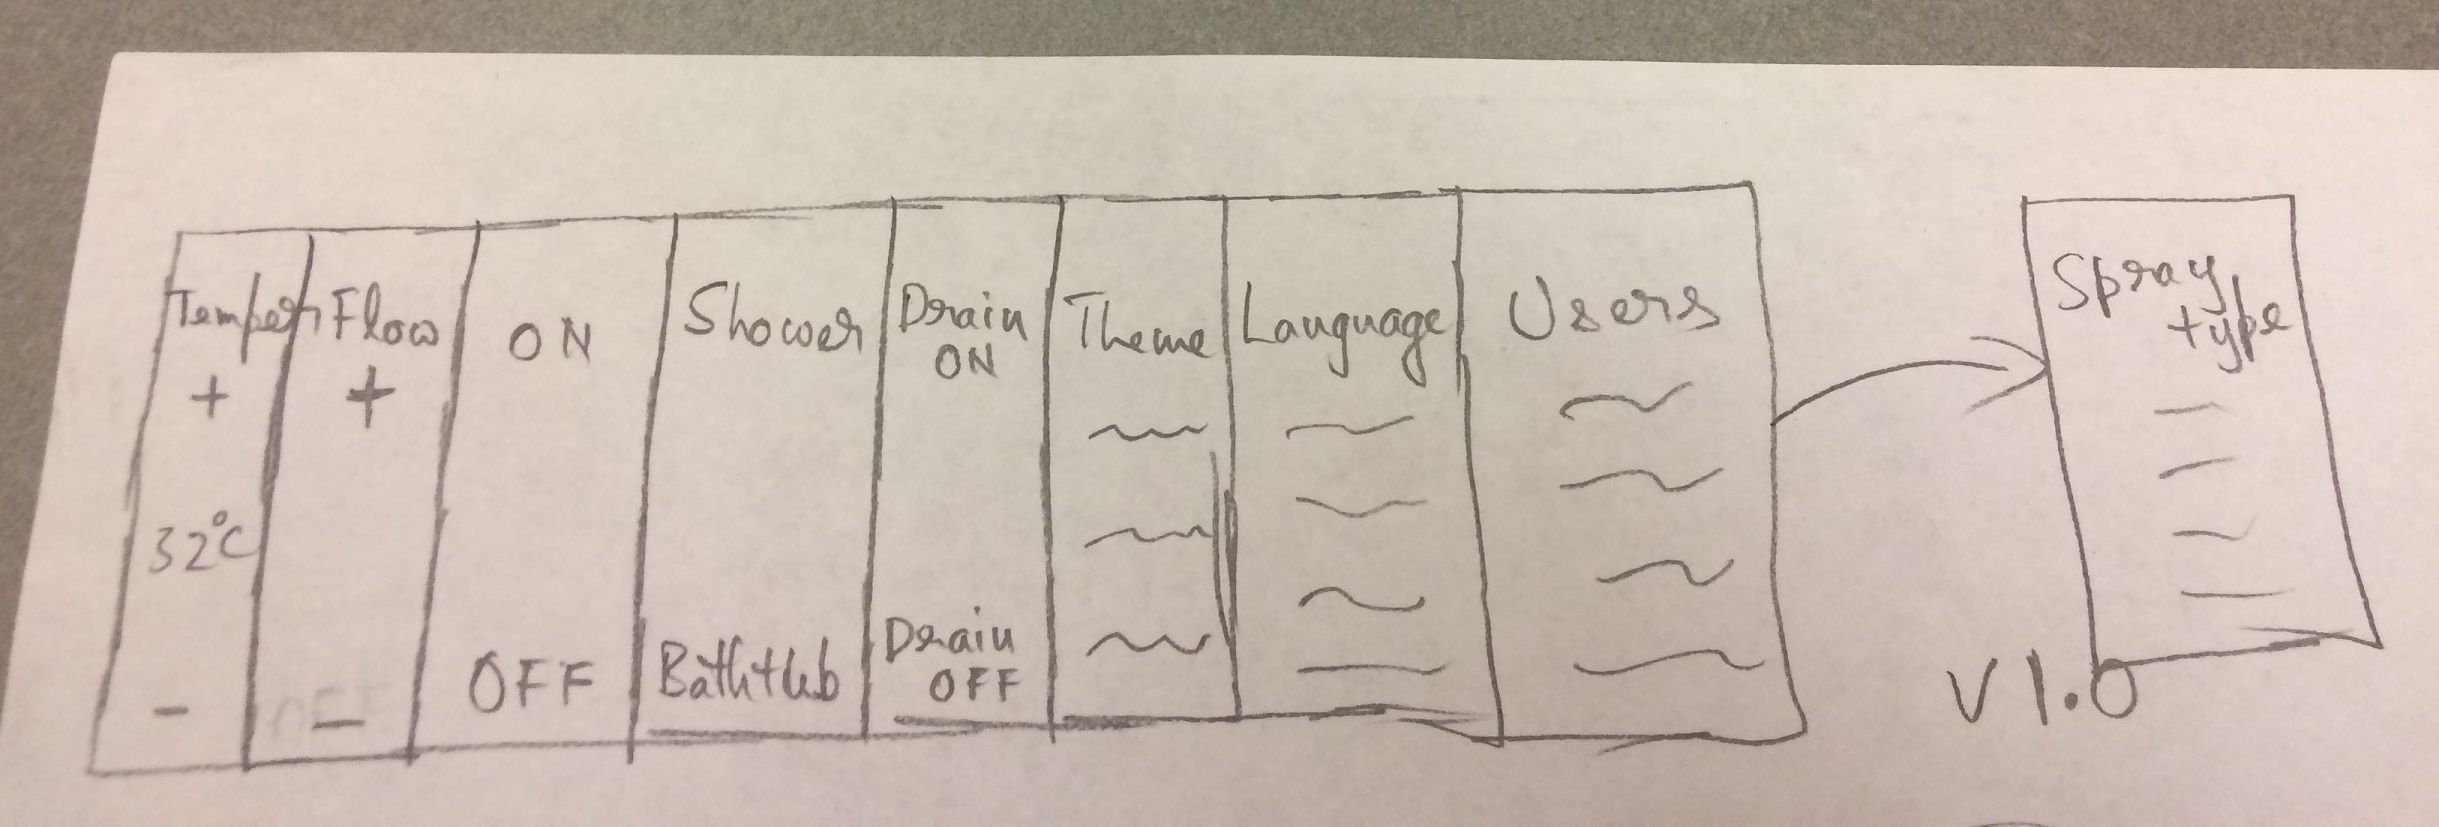 Temper
+
32°C
-
Flow
+
-
ON
OFF
Shower
Bathtub
Drain
ON
Drain
OFF
Theme
Language
Users
Spray
type
V1.0